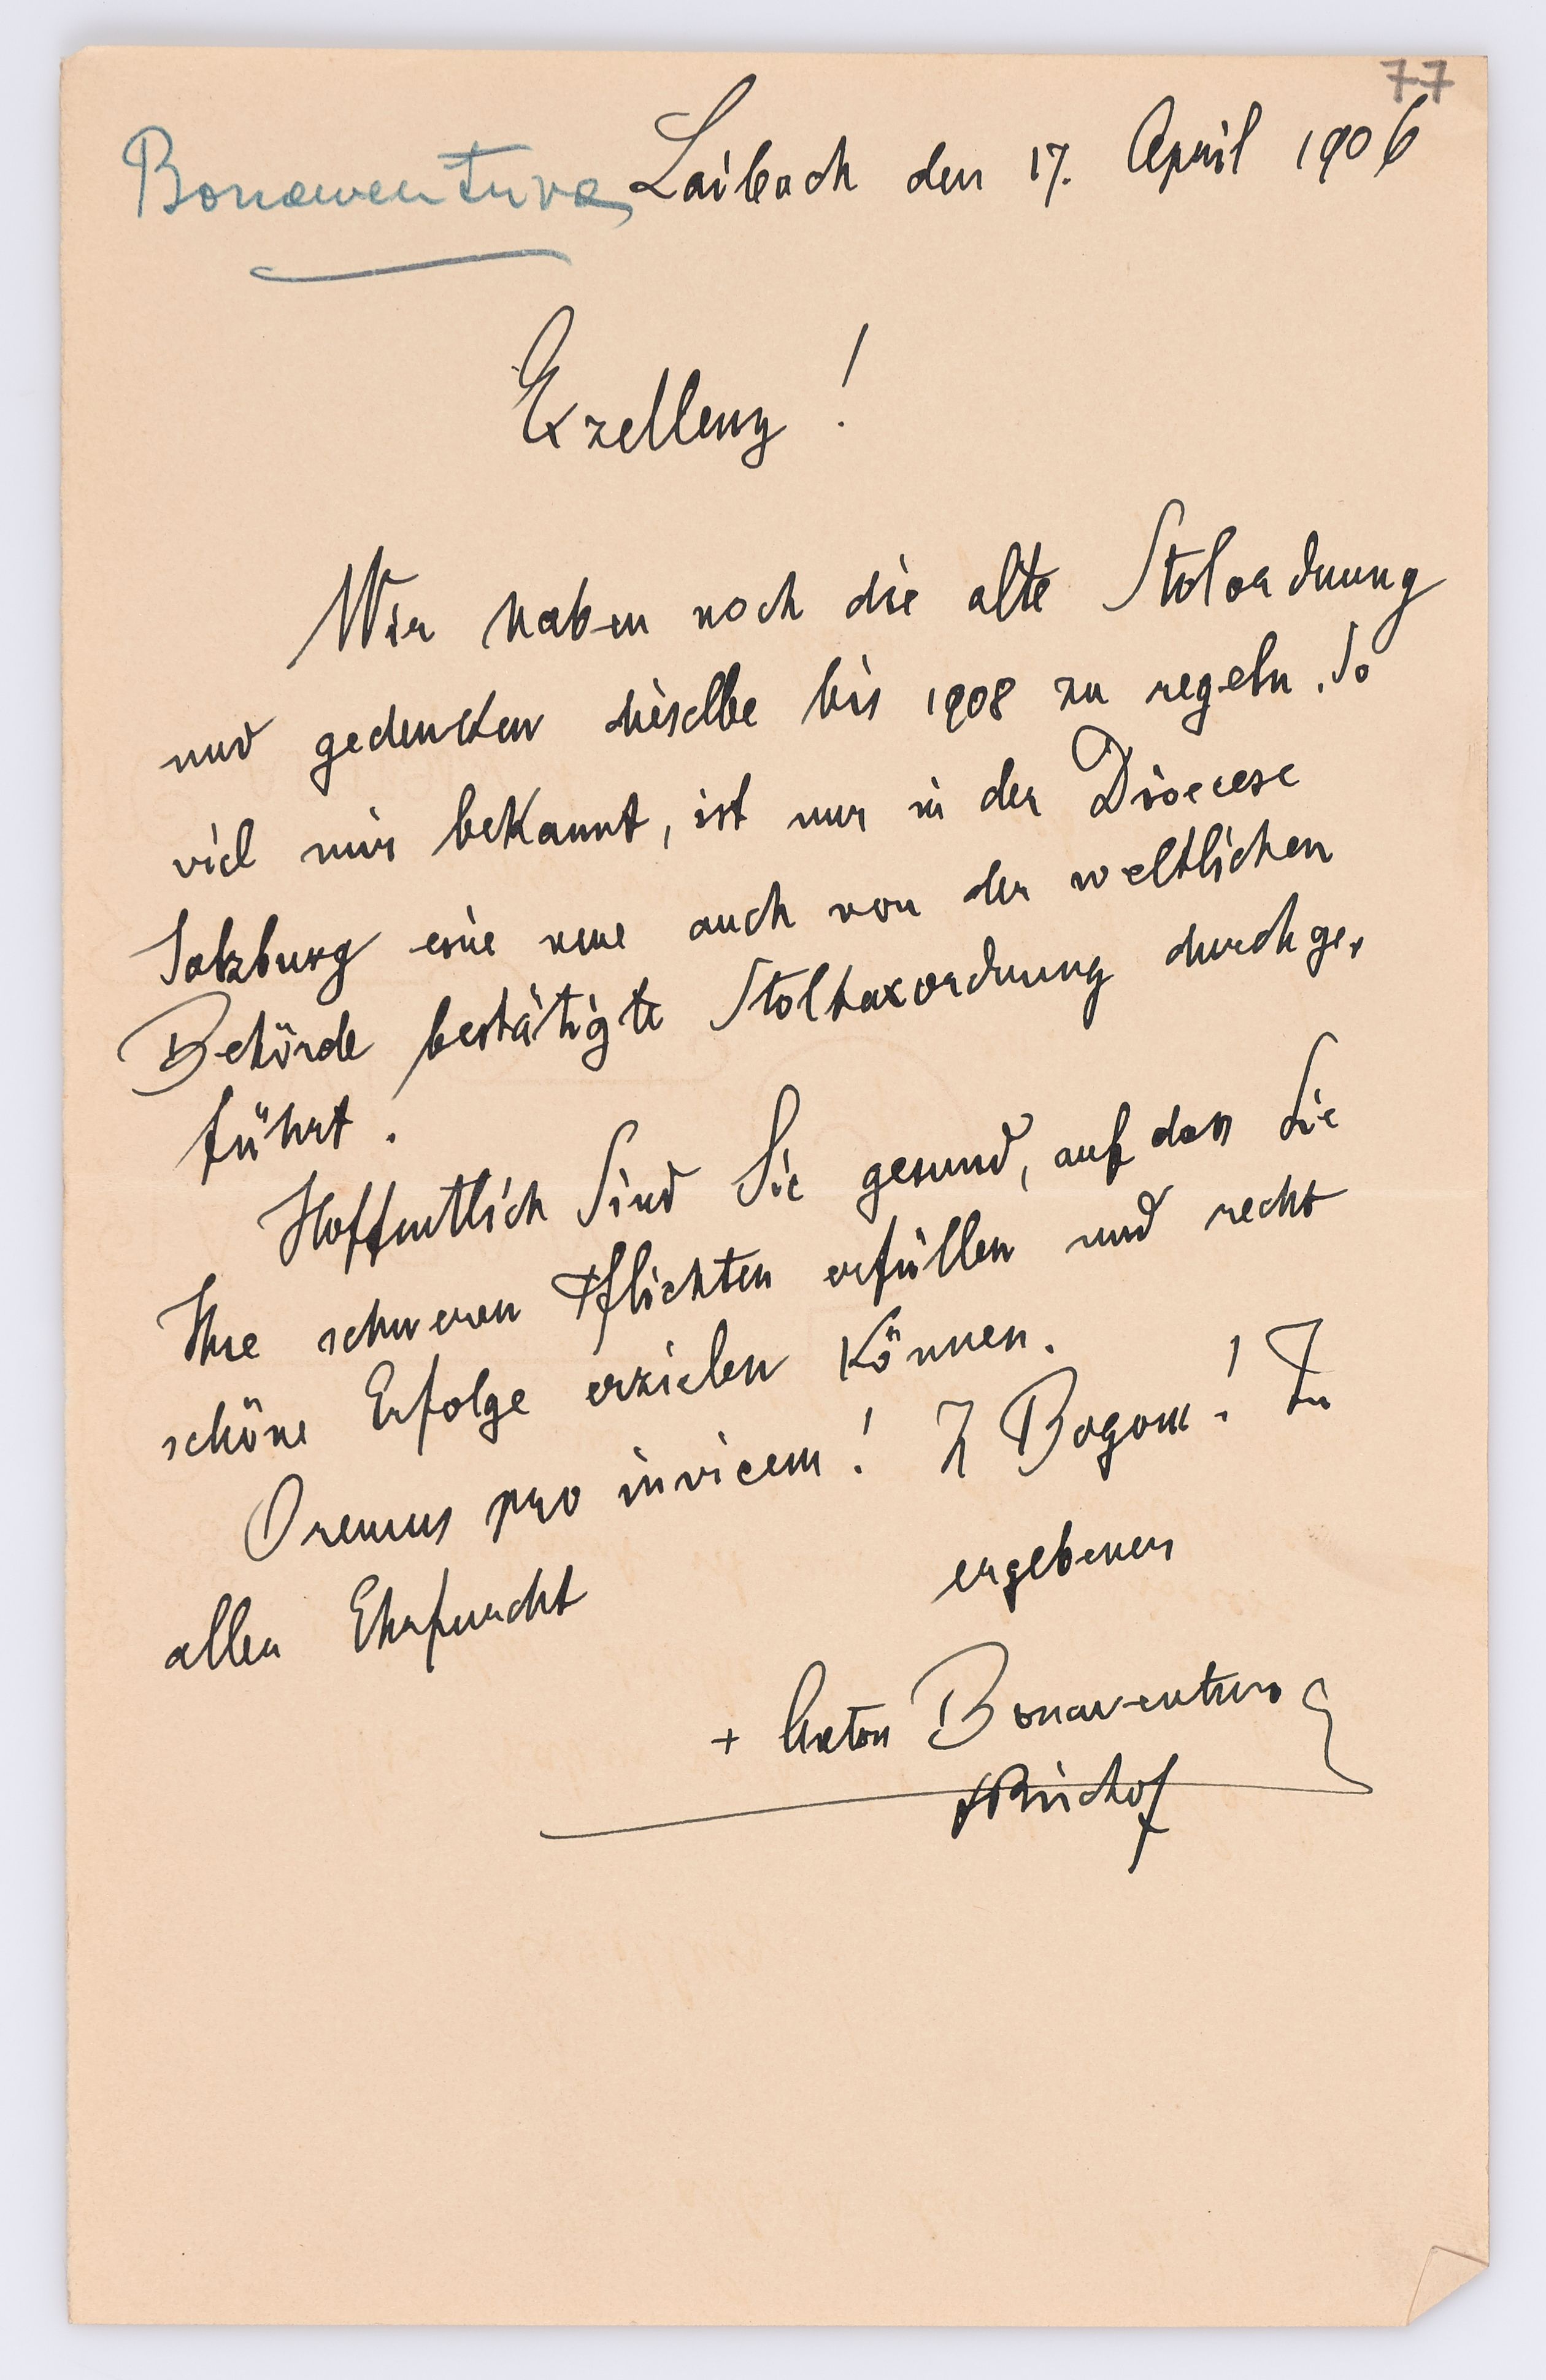 77
Bonaventura Laibach den 17. April 1906
Exzellenz!
Wir haben noch die alte Stolordnung
und gedenken dieselbe bis 1908 zu regeln. So
viel mir bekannt, ist nur in der Dioecese
Salzburg eine neue auch von der weltlichen
Behörde bestätigte Stoltaxordnung durchge-
führt.
Hoffentlich sind Sie gesund, auf dass Sie
Ihre schweren Pflichten erfüllen und recht
schöne Erfolge erzielen können.
Oremus pro invicem! Z Bogom! In
aller Ehrfurcht
ergebener
+ Anton Bonaventura
FBischof